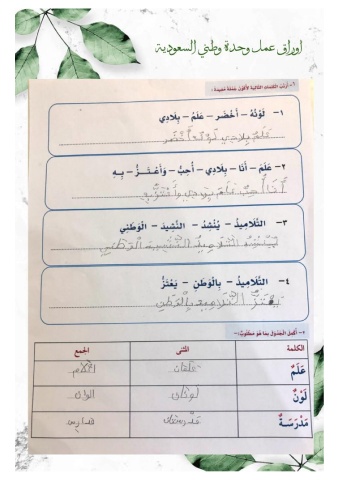 اوراق عمل وحدة وطني السعودية
٦- أرتب الكلمات التالية لأكون جملة مفيدة:
١- لَوْنُهُ – أَخْضَر – عَلَمُ – بِلادِي
عَلَمُ بِلادِي لَوْنُهُ أَخْضَر
٢- عَلَمَ – أَنَا – بِلادِي – أُحِبُّ – وَأَعْتَزُّ – بِهِ
أَنَا أُحِبُّ عَلَمَ بِلادِي وَأَعْتَزُّ بِهِ
٣- التَّلامِيذُ – يُنْشِدُ – النَّشِيدَ – الْوَطَنِي
يُنْشِدُ التَّلامِيذُ النَّشِيدَ الْوَطَنِي
٤- التَّلامِيذُ – بِالْوَطَنِ – يَعْتَزُّ
يَعْتَزُّ التَّلامِيذُ بِالْوَطَنِ
أكمل الجدول بما هو مطلوب:-
الكلمة المثنى الجمع
عَلَمٌ علمان
لَوْنٌ لونان الوان
مَدْرَسَةٌ مدرستان مدارس